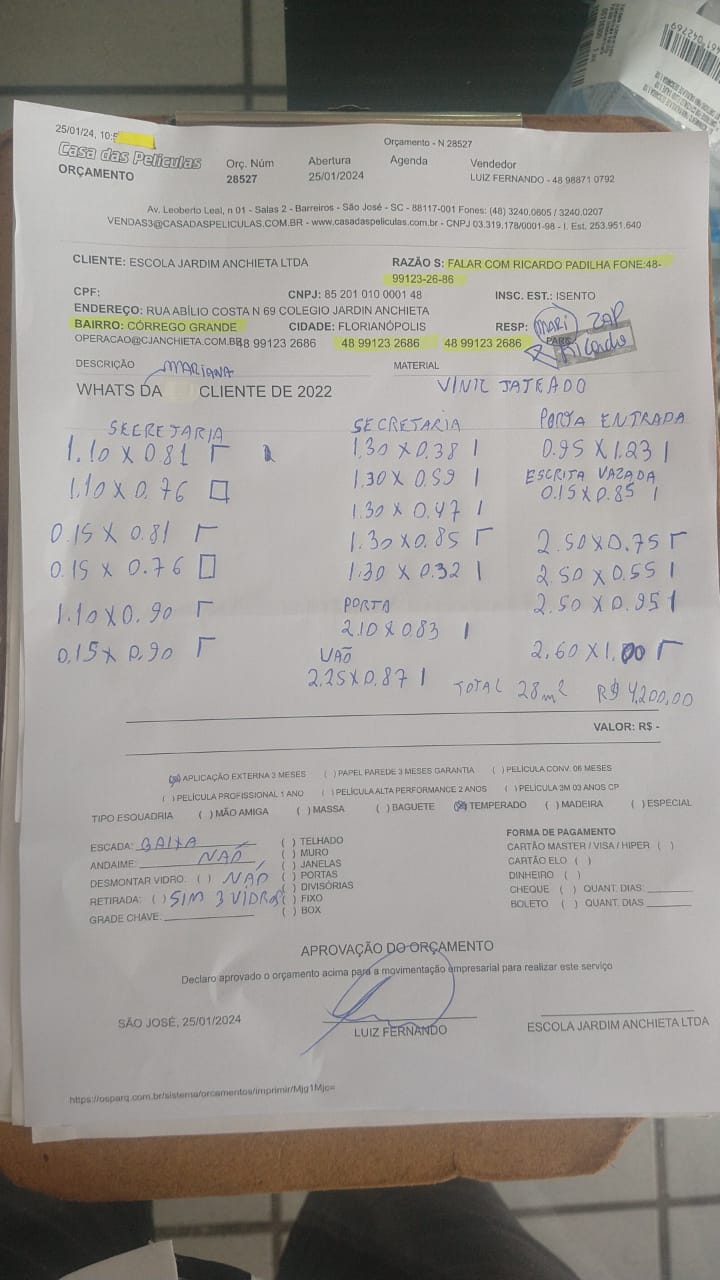 25/01/24, 10:
Orçamento - N 28527
Casa das Películas
ORÇAMENTO
Orç. Núm
28527
Abertura
25/01/2024
Agenda
Vendedor
LUIZ FERNANDO - 48 98871 0792
Av. Leoberto Leal, n 01 - Salas 2 - Barreiros - São José - SC - 88117-001 Fones: (48) 3240.0605 / 3240.0207
VENDAS3@CASADASPELICULAS.COM.BR - www.casadaspeliculas.com.br - CNPJ 03.319.178/0001-98 - I. Est. 253.951.640
CLIENTE: ESCOLA JARDIM ANCHIETA LTDA
RAZÃO S: FALAR COM RICARDO PADILHA FONE:48-
99123-26-86
CPF:
CNPJ: 85 201 010 0001 48
INSC. EST.: ISENTO
ENDEREÇO: RUA ABÍLIO COSTA N 69 COLEGIO JARDIN ANCHIETA
BAIRRO: CÓRREGO GRANDE
CIDADE: FLORIANÓPOLIS
RESP: MARI ZAP
OPERACAO@CJANCHIETA.COM.BR
48 99123 2686
48 99123 2686
48 99123 2686
Ricardo
DESCRIÇÃO
MARIANA
MATERIAL
WHATS DA CLIENTE DE 2022
VINIL JATEADO
SECRETARIA
1.10 X 0.81
1.10 X 0.76
0.15 X 0.81
0.15 X 0.76
1.10 X 0.90
0.15 X 0.90
SECRETARIA
1.30 X 0.38 1
1.30 X 0.59 1
1.30 X 0.47 1
1.30 X 0.85
1.30 X 0.32 1
PORTA
2.10 X 0.83 1
VAÕ
2.25 X 0.87 1
PORTA ENTRADA
0.95 X 1.23 1
ESCRITA VAZADA
0.15 X 0.85 1
2.50 X 0.75
2.50 X 0.55 1
2.50 X 0.95 1
2.60 X 1.00
TOTAL 28m² R$ 4.200,00
VALOR: R$ -
(X) APLICAÇÃO EXTERNA 3 MESES ( ) PAPEL PAREDE 3 MESES GARANTIA ( ) PELÍCULA CONV. 06 MESES
( ) PELÍCULA PROFISSIONAL 1 ANO ( ) PELÍCULA ALTA PERFORMANCE 2 ANOS ( ) PELÍCULA 3M 03 ANOS CP
TIPO ESQUADRIA ( ) MÃO AMIGA ( ) MASSA ( ) BAGUETE (X) TEMPERADO ( ) MADEIRA ( ) ESPECIAL
ESCADA: BAIXA
ANDAIME: NAÕ
DESMONTAR VIDRO: ( ) NAÕ
RETIRADA: ( ) SIM 3 VIDROS
GRADE CHAVE:
( ) TELHADO
( ) MURO
( ) JANELAS
( ) PORTAS
( ) DIVISÓRIAS
( ) FIXO
( ) BOX
FORMA DE PAGAMENTO
CARTÃO MASTER / VISA / HIPER ( )
CARTÃO ELO ( )
DINHEIRO ( )
CHEQUE ( ) QUANT. DIAS:
BOLETO ( ) QUANT. DIAS
APROVAÇÃO DO ORÇAMENTO
Declaro aprovado o orçamento acima para a movimentação empresarial para realizar este serviço
SÃO JOSÉ, 25/01/2024
LUIZ FERNANDO
ESCOLA JARDIM ANCHIETA LTDA
https://osparq.com.br/sistema/orcamentos/imprimir/Mjg1Mjc=